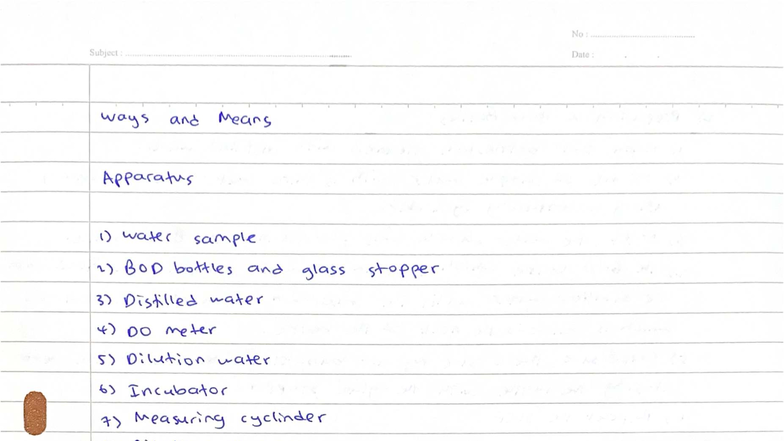 No :
Subject :
Date :
Ways and Means
Apparatus
1) Water sample
2) BOD bottles and glass stopper
3) Distilled water
4) DO meter
5) Dilution water
6) Incubator
7) Measuring cyclinder